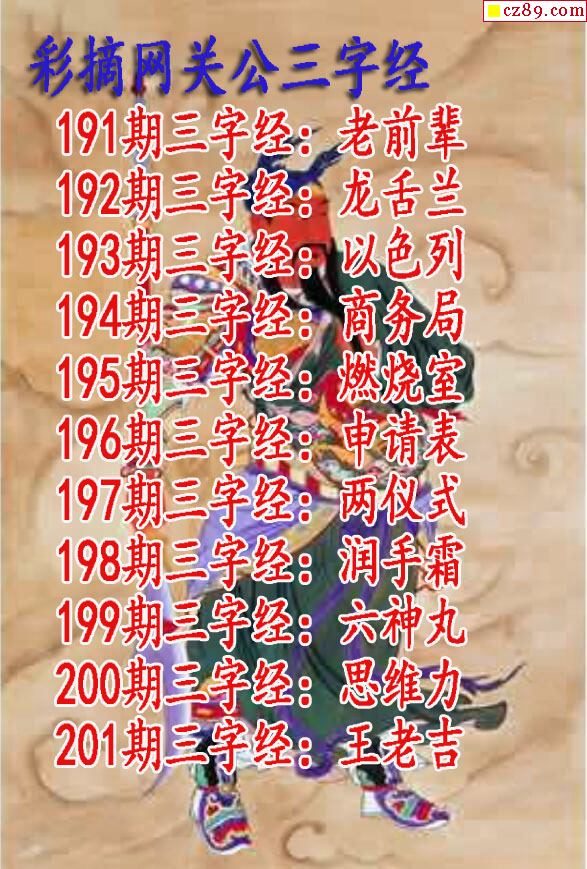 cz89.com
彩摘网关公三字经
191期三字经：老前辈
192期三字经：龙舌兰
193期三字经：以色列
194期三字经：商务局
195期三字经：燃烧室
196期三字经：申请表
197期三字经：两仪式
198期三字经：润手霜
199期三字经：六神丸
200期三字经：思维力
201期三字经：王老吉